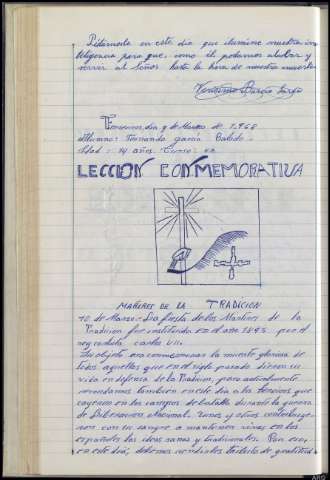 Pidamosle en este dia que ilumine nuestra in
teligencia para que, como él, podamos alabar y
servir al Señor hasta la hora de nuestra muerte
Garcia
dia 9 de Marzo de 1.968
Alumno: Fernando garcia
Edad: 14 años. Curso:
LECCION CONMEMORATIVA
MARTIRES DE LA TRADICION
10 de Marzo: La fiesta de los Martires de la
Tradicion fue instituida en el año 1895 por el
rey carlista Carlos VII.
Su objeto era conmemorar la muerte gloriosa de
todos aquellos que en el siglo pasado dieron su
vida en defensa de la Tradicion, pero actualmente
recordamos tambien en este dia a los heroicos que
cayeron en los campos de batalla durante la guerra
de Liberacion Nacional. Unos y otros contribuye-
ron con su sangre a mantener vivas en los
españoles las ideas sanas y tradicionales. Por eso,
en este dia, debemos rendirles tributo de gratitud